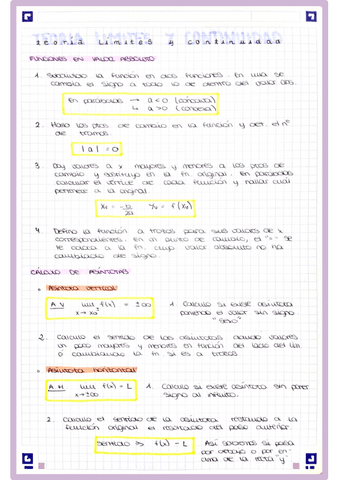 TEORÍA LÍMITES Y CONTINUIDAD
teoría límites y continuidad
FUNCIONES EN VALOR ABSOLUTO
1. la función en dos funciones. En una se
cambia el signo a todo lo de dentro del valor abs.
En parábolas → a<0 (cóncava)
↳ a>0 (convexa)
2. Hallo los ptos de cambio en la función y det. el nº
de tramos.
|a| = 0
3. Doy valores a x mayores y menores a los ptos de
cambio y sustituyo en la fn original. En parábolas
calcular el vértice de cada función y hallar cuál
pertenece a la original.
Xv = -b/2a Yv = f(Xv)
4. Defino la función a trozos para sus valores de x
correspondientes. En un punto de cambio, el "=" se
le coloca a la fn. cuyo valor absoluto no ha
cambiado de signo.
CÁLCULO DE ASÍNTOTAS
Asíntota vertical
A.V lím f(x) = ±∞
x→x₀
1. Calculo si existe asíntota
poniendo el valor sin signo.
2. Calculo el sentido de las asíntotas dando valores
un poco mayores y menores en función del lado del lím
o cambiando la fn si es a trozos
Asíntota horizontal
A.H lím f(x) = L
x→±∞
1. Calculo si existe asíntota sin poner
signo al infinito.
2. Calculo el sentido de la asíntota restando a la
función original el resultado del paso anterior.
Sentido ⇒ f(x) - L
Así sabremos si pasa
por debajo o por en-
cima de la recta y